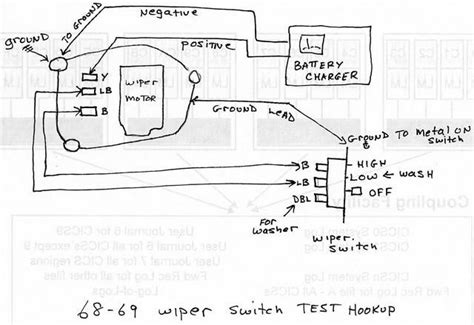 Negative
TO GROUND
GROUND
positive
BATTERY
CHARGER
Y
LB
B
wiper
MOTOR
GROUND LEAD
GROUND TO METAL ON
SWITCH
B
LB
DBL
HIGH
LOW
WASH
OFF
For
washer
wiper
switch
Coupling Facility
CICS System Log
User Journal 6 for all CICS9
User Journal 6 for all CICSs except 9
User Journal 1 for all CICS regions
CICSn System Log
Fwd Rec Log for all other files
Fwd Rec Log for file A - All CICSs
Log-of-Logs
68-69 wiper switch TEST HOOKUP